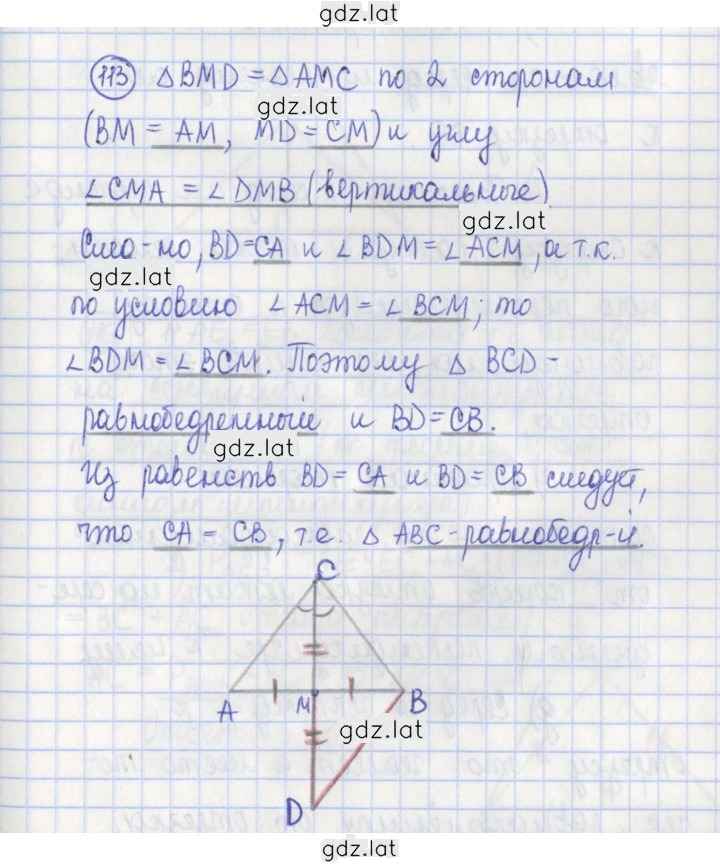 gdz.lat
113 △BMD = △AMC по 2 сторонам
gdz.lat
(BM = AM, MD = CM) и углу
∠CMA = ∠DMB (вертикальные)
gdz.lat
Сле-но, BD = CA и ∠BDM = ∠ACM, а т.к.
gdz.lat
по условию ∠ACM = ∠BCM; то
∠BDM = ∠BCM. Поэтому △ BCD -
равнобедренный и BD = CB.
gdz.lat
Из равенств BD = CA и BD = CB следует,
что CA = CB, т.е. △ ABC - равнобедр-й.
C
A M B
gdz.lat
D
gdz.lat